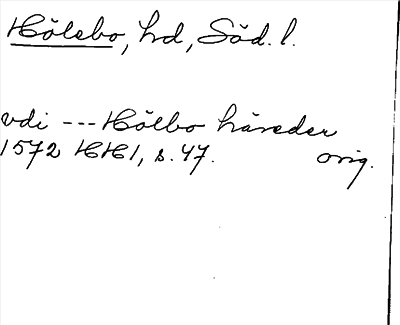 Hölebo, hd, Söd. l.
vdi --- Hölbo häreder
1572 HH1, s. 47. orig.